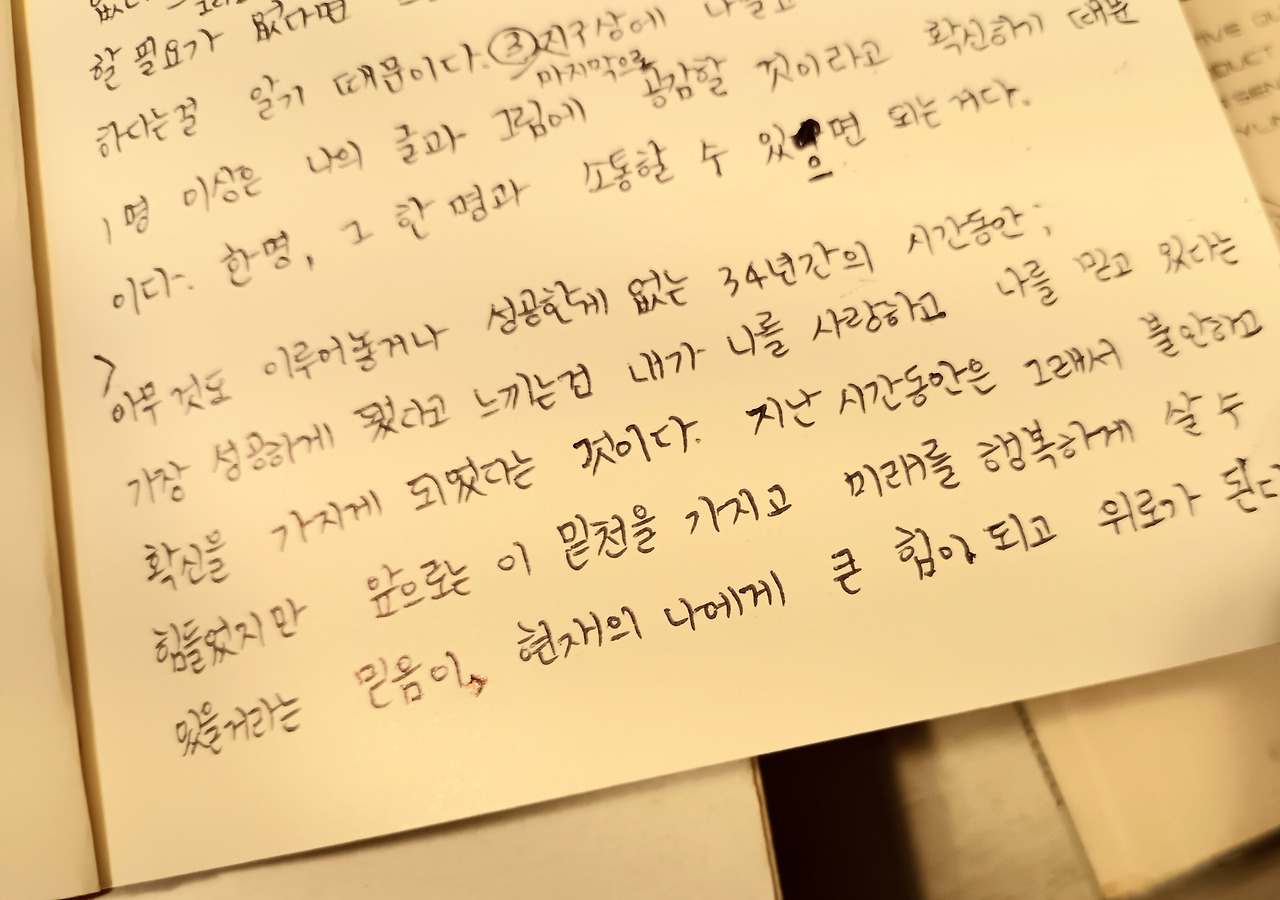 할 필요가 없다면
하다는걸 알기 때문이다. ③ 지구상에
마지막으로
1명 이상은 나의 글과 그림에 공감할 것이라고 확신하기 때문
이다. 한명, 그 한 명과 소통할 수 있으면 되는거다.
아무 것도 이루어놓거나 성공한게 없는 34년간의 시간동안;
가장 성공하게 됐다고 느끼는건 내가 나를 사랑하고 나를 믿고 있다는
확신을 가지게 되었다는 것이다. 지난 시간동안은 그래서 불안하고
힘들었지만 앞으로는 이 밑천을 가지고 미래를 행복하게 살 수
있을거라는 믿음이, 현재의 나에게 큰 힘이 되고 위로가 된다